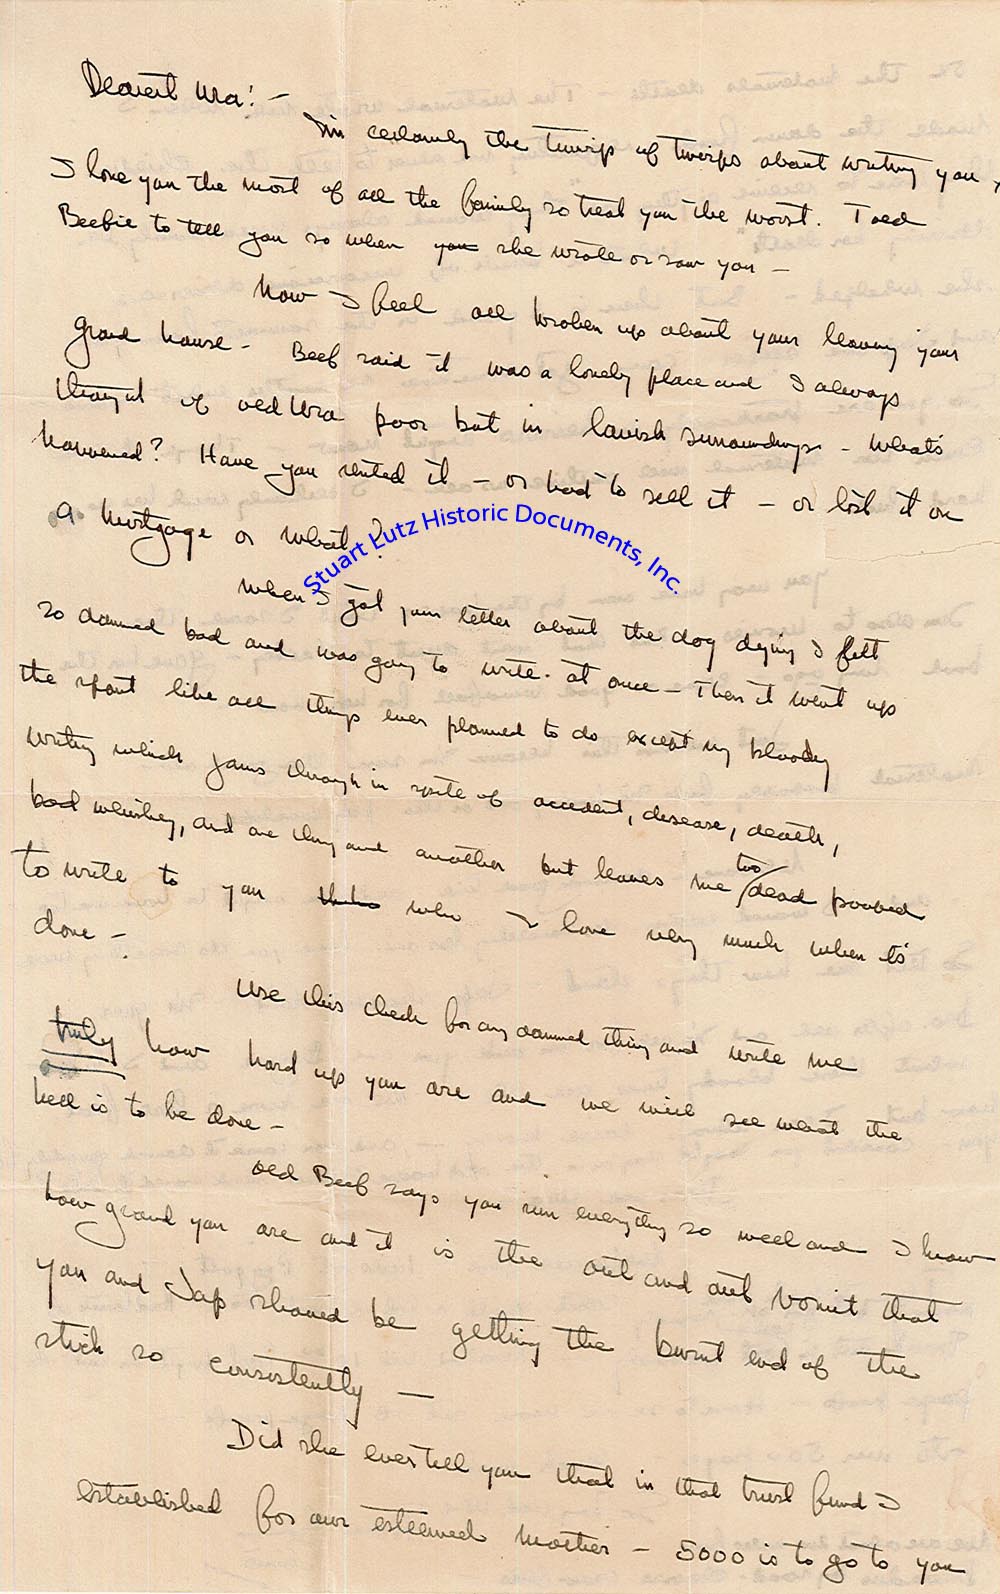 Dearest Ura: -
I'm certainly the twirp of twirps about writing you,
I love you the most of all the family so treat you the worst. Told
Beefie to tell you so when you she wrote or saw you -
Now I feel all broken up about your leaving your
grand house - Beef said it was a lonely place and I always
thought of old Ura poor but in lavish surroundings - What's
happened? Have you rented it - or had to sell it - or lost it on
a mortgage or what?
Stuart Lutz Historic Documents, Inc.
When I got your letter about the dog dying I felt
so damned bad and was going to write at once - Then it went up
the spout like all things ever planned to do except my bloody
writing which jams through in spite of accident, disease, death,
bad whiskey, and one thing and another but leaves me too dead pooped
to write to you who I love very much when it's
done -
Use this check for any damned thing and write me
truly how hard up you are and we will see what the
hell is to be done -
Old Beef says you run everything so well and I know
how grand you are and it is the out and out vomit that
you and Jap should be getting the burnt end of the
stick so consistently -
Did she ever tell you that in that trust fund I
established for our esteemed mother - 5000 is to go to you